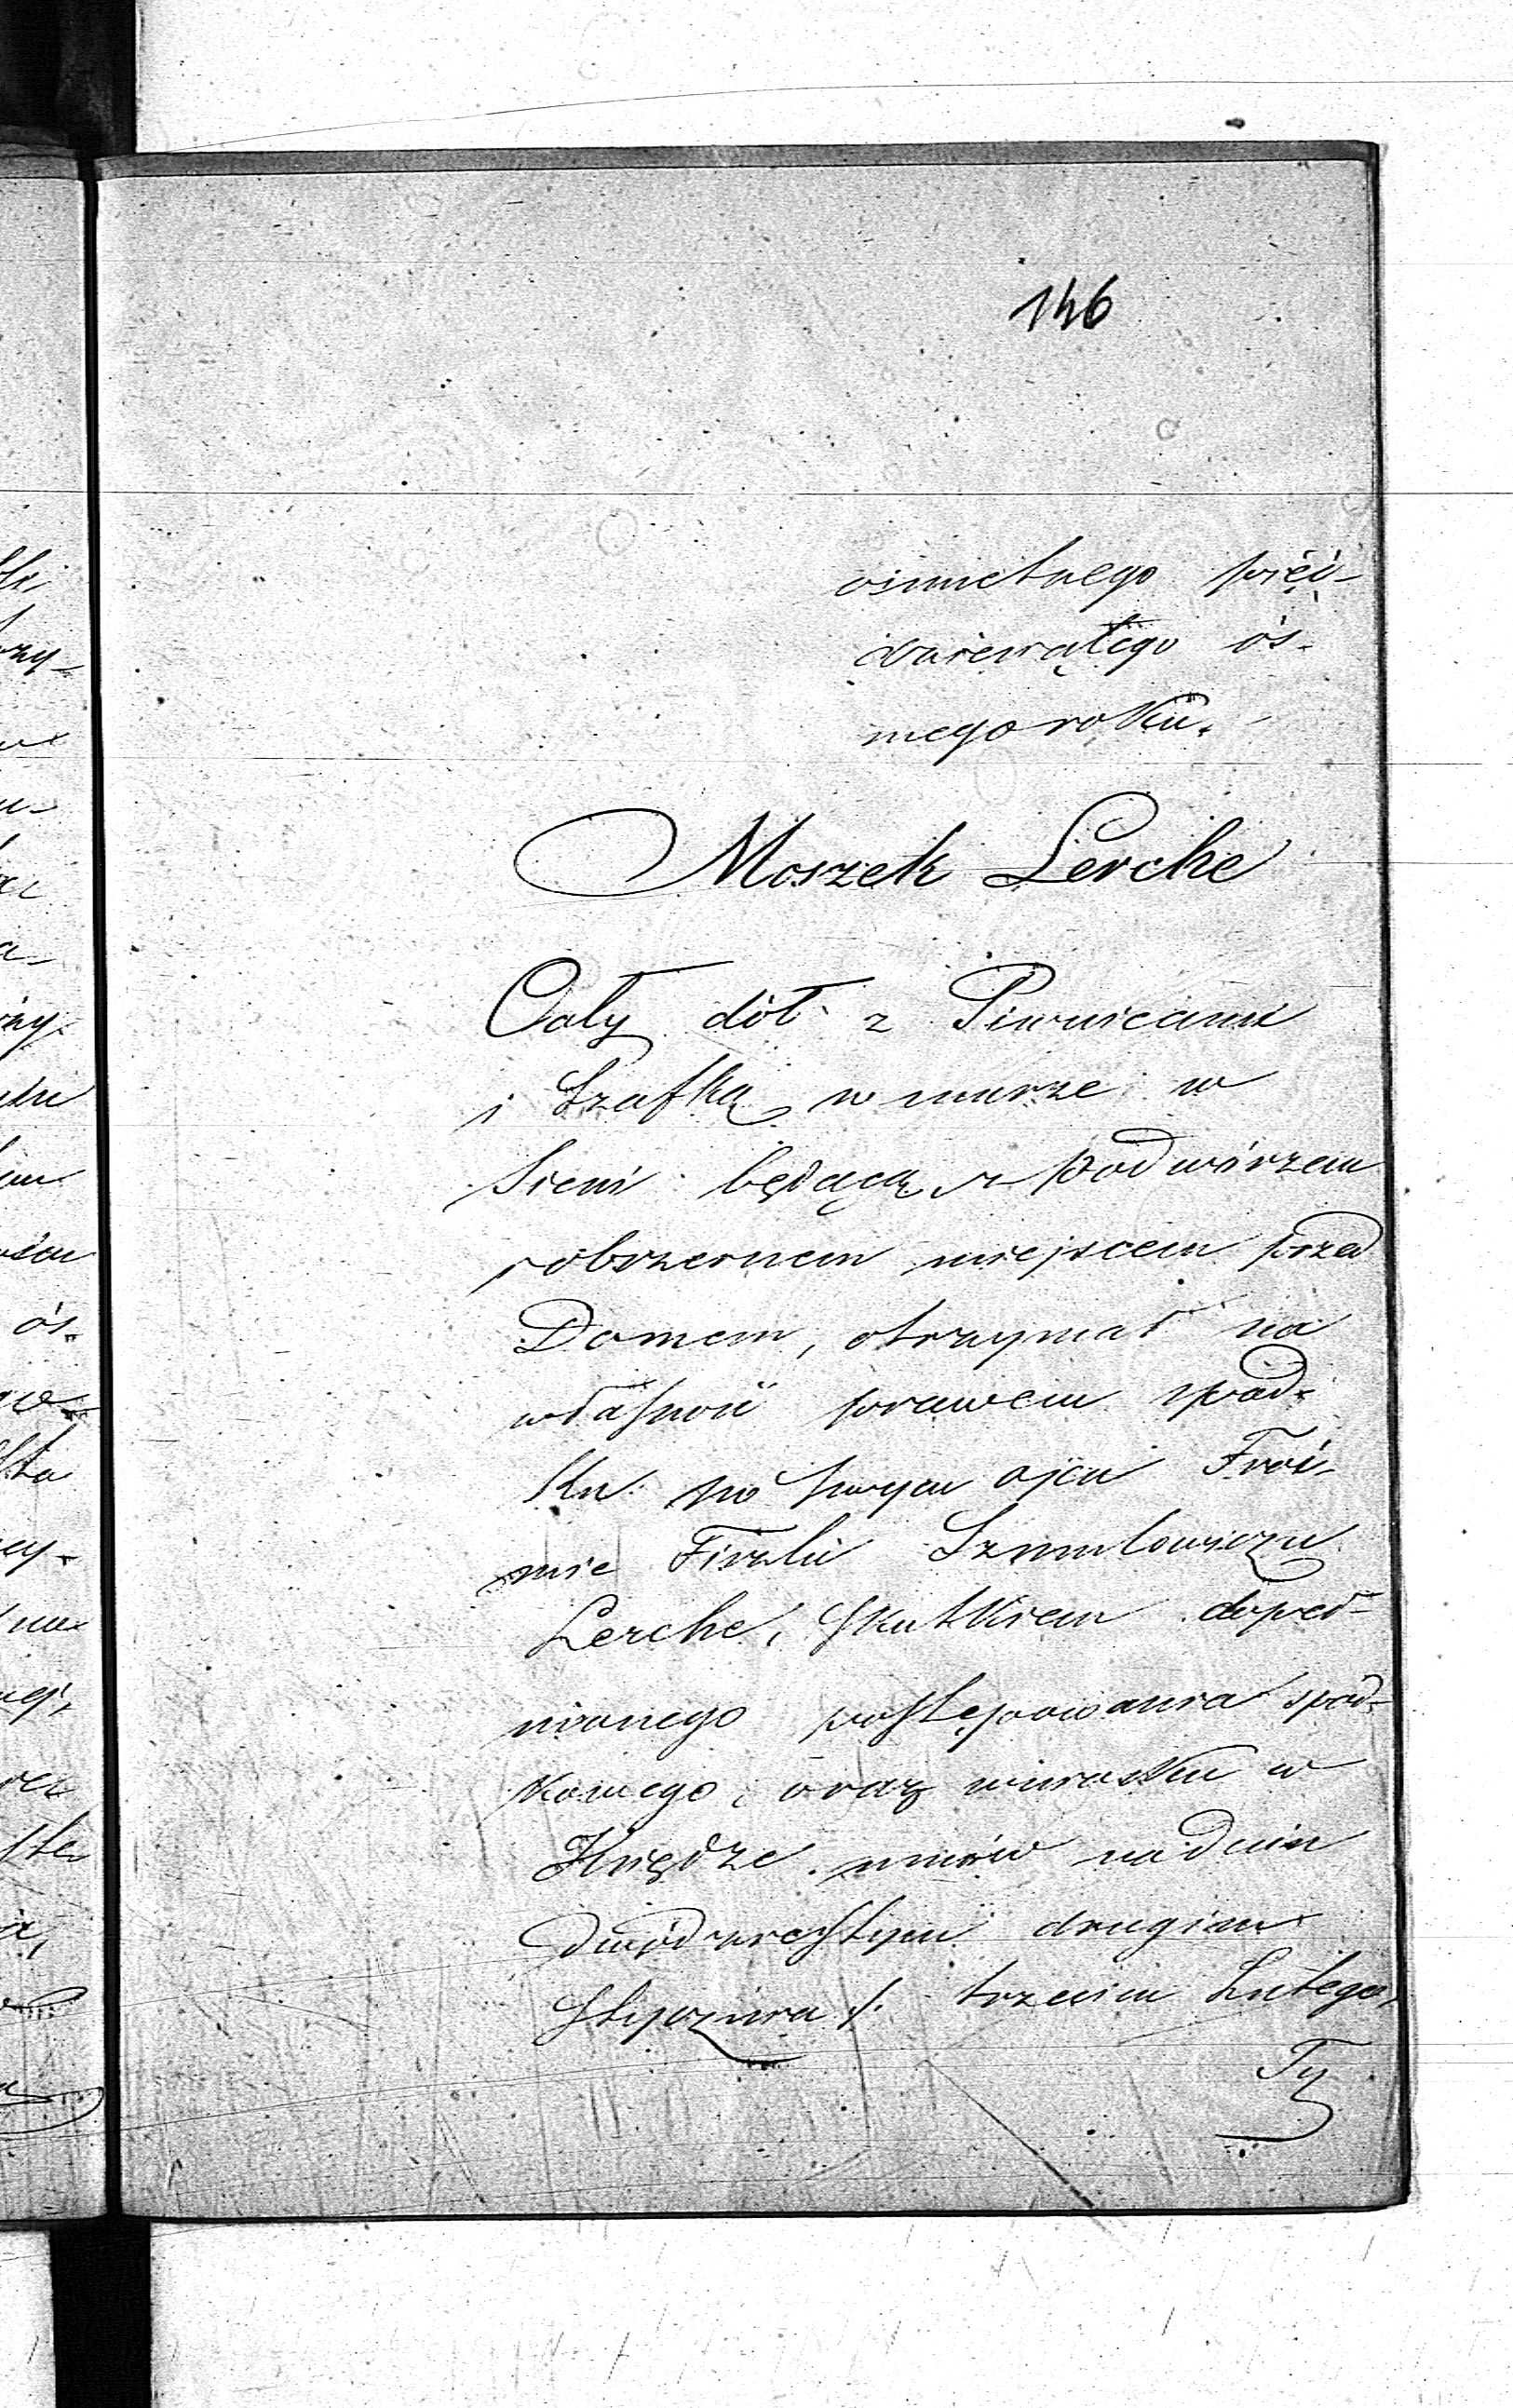 146
ośmsetnego pięć-
dziewiątego ós-
mego roku.
Moszek Lerche
Cały dół z Piwnicami
i Szafką w murze w
Sieni będącą z podwórzem
i obszernem miejscem przed
Domem, otrzymał na
własność prawem spad-
ku po swym ojcu Froi-
mie Fiszlu Szmulowiczu
Lerche, skutkiem dopeł-
nionego postępowania spad-
kowego, oraz wniosku w
Księdze umów na dniu
dwódziestym drugim
Stycznia /. trzecim Lutego,
Ty